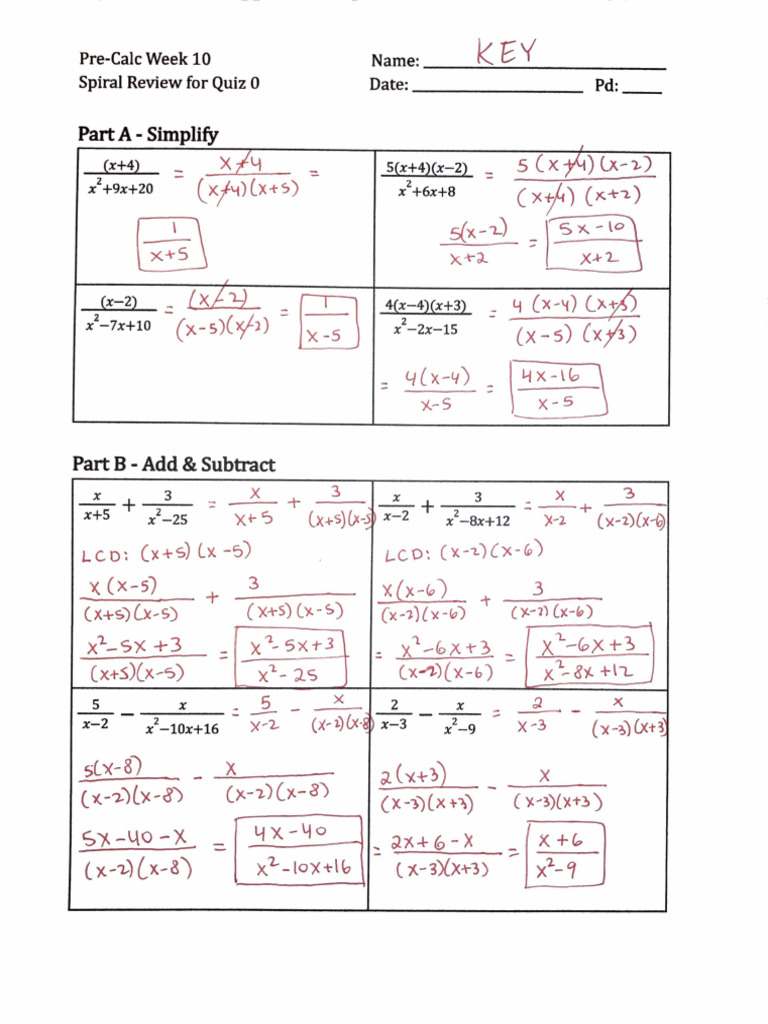 Pre-Calc Week 10 Name: KEY
Spiral Review for Quiz 0 Date: ____ Pd: ____
Part A - Simplify
(x+4)/(x²+9x+20) = (x+4)/((x+4)(x+5)) =
1/(x+5)
5(x+4)(x−2)/(x²+6x+8) = 5(x+4)(x-2)/((x+4)(x+2))
5(x-2)/(x+2) = (5x-10)/(x+2)
(x−2)/(x²−7x+10) = (x-2)/((x-5)(x-2)) = 1/(x-5)
4(x−4)(x+3)/(x²−2x−15) = 4(x-4)(x+3)/((x-5)(x+3))
= 4(x-4)/(x-5) = (4x-16)/(x-5)
Part B - Add & Subtract
x/(x+5) + 3/(x²−25) = x/(x+5) + 3/((x+5)(x-5))
LCD: (x+5)(x-5)
x(x-5)/((x+5)(x-5)) + 3/((x+5)(x-5))
(x²-5x+3)/((x+5)(x-5)) = (x²-5x+3)/(x²-25)
x/(x−2) + 3/(x²−8x+12) = x/(x-2) + 3/((x-2)(x-6))
LCD: (x-2)(x-6)
x(x-6)/((x-2)(x-6)) + 3/((x-2)(x-6))
= (x²-6x+3)/((x-2)(x-6)) = (x²-6x+3)/(x²-8x+12)
5/(x−2) − x/(x²−10x+16) = 5/(x-2) - x/((x-2)(x-8))
5(x-8)/((x-2)(x-8)) - x/((x-2)(x-8))
(5x-40-x)/((x-2)(x-8)) = (4x-40)/(x²-10x+16)
2/(x−3) − x/(x²−9) = 2/(x-3) - x/((x-3)(x+3))
2(x+3)/((x-3)(x+3)) - x/((x-3)(x+3))
= (2x+6-x)/((x-3)(x+3)) = (x+6)/(x²-9)